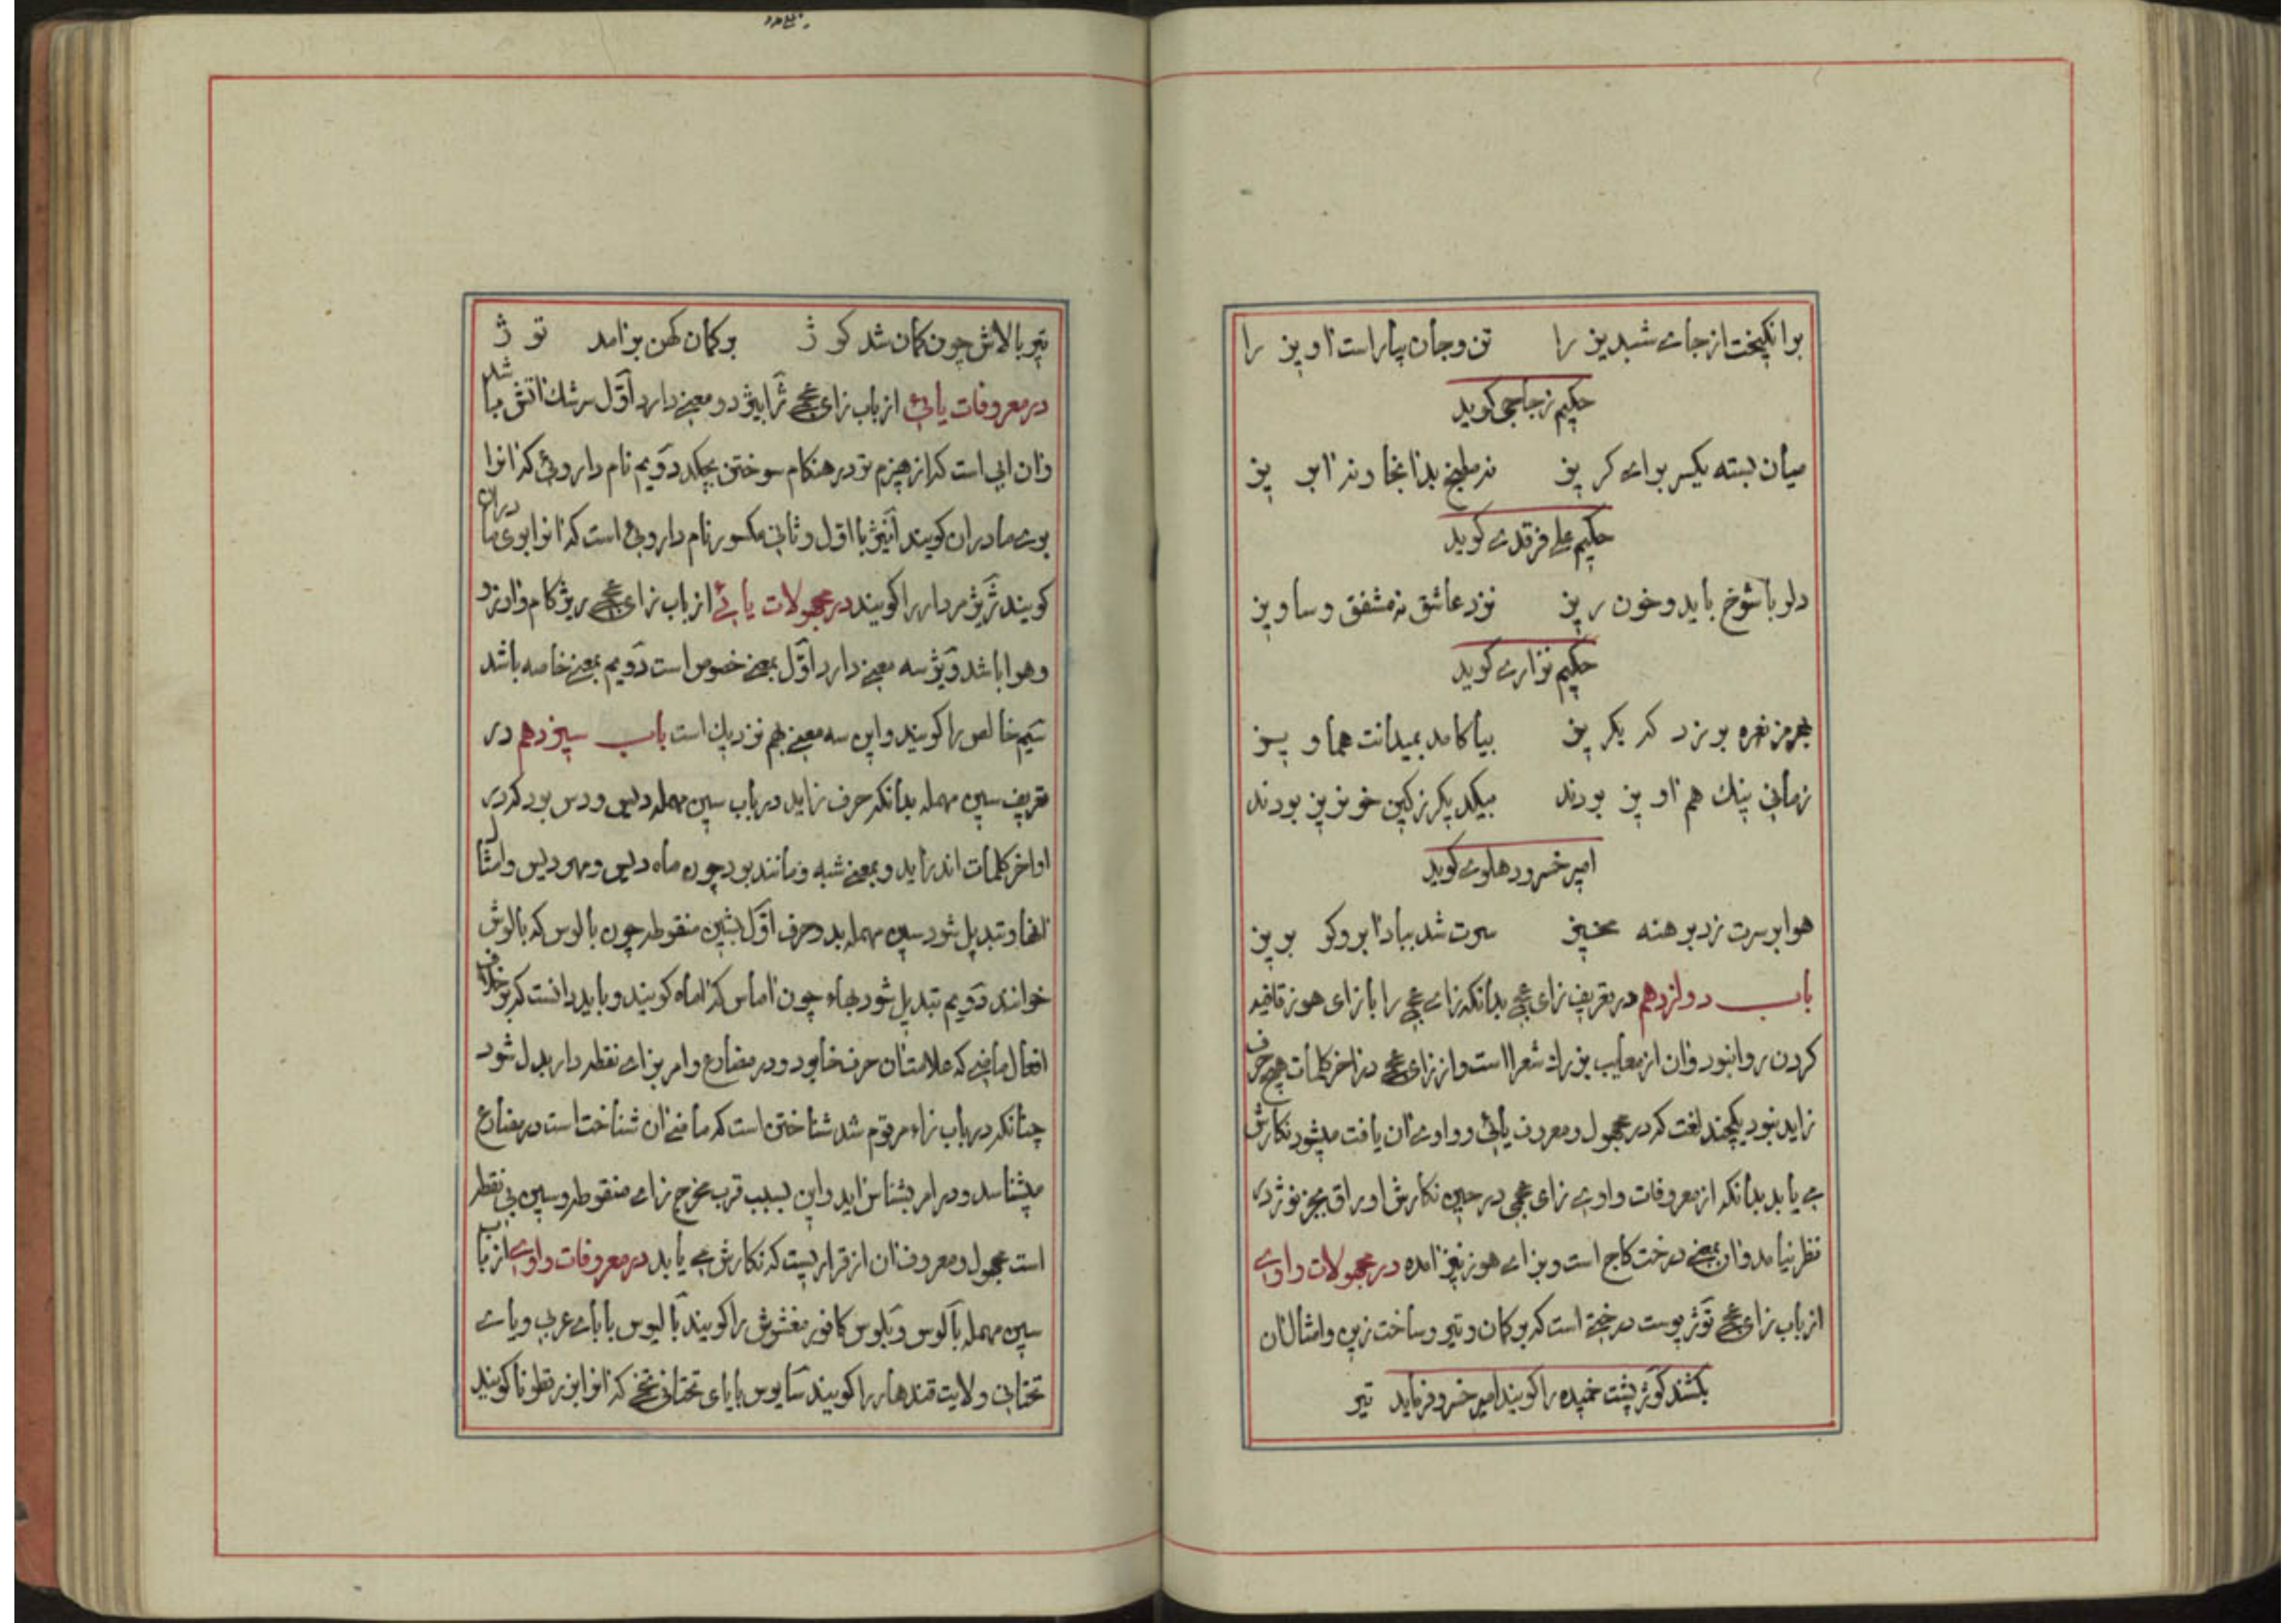 برانگیخت از جای شبدیز را تن و جان بیاراست اویز را
حکیم زجاجی گوید
میان بسته یکسر برای گریز نه مطبخ بد آنجا و نه آبریز
حکیم علی فرقدی گوید
دلربا شوخ باید و خون ریز نزد عاشق نه مشفق و ساویز
حکیم نزاری گوید
نعره بر زد که یکریز بیا کامد بمیدانت هماویز
زمانی نیک هم اویز بودند بیکدیگر ز کین خونریز بودند
امیر خسرو دهلوی گوید
هوا بر سرت زد برهنه مخیز سرت شد بباد آبرو کو بریز
باب دوازدهم در تعریف زای عجمی بدانکه زای عجمی را با زای هوز قافیه
کردن روا نبود و ان از معایب بزرك شعرا است و از زای عجمی در اخر کلمات هیچ حرف
زاید نبود یکچند لغت که در مجهول و معروف یائی و واوی ان یافت میشود نکارش
می یابد بدانکه از معروفات واوی زای عجمی در حین نکارش اوراق بجز نوژ در
نظر نیامد و ان بمعنی درخت کاج است و بزای هوز نیز امده در مجهولات واوی
از باب زای عجمی توژ پوست درختی است که بر کمان و تیر و ساخت زین و امثال ان
بکشند کوژ پشت خمیده را کویند امیر خسرو فرماید تیر
تیر بالاش چون کمان شد کوژ بر کمان کهن برامد توژ
در معروفات یائی از باب زای عجمی ژابیژ دو معنی دارد اول سرشك اتش باشد
و ان ابی است که از هیزم تر در هنکام سوختن بچکد دویم نام داروئی که انرا
بوی مادران کویند انیژ با اول و ثانی مکسور نام داروئی است که انرا بوی مادران
کویند ژیژ مردار را کویند در مجهولات یائی از باب زای عجمی ریژ کام و ارزو
و هوا باشد ویژ سه معنی دارد اول بمعنی خصوص است دویم بمعنی خاصه باشد
سیم خالص را کویند و این سه معنی بهم نزدیك است باب سیزدهم در
تعریف سین مهمله بدانکه حرف زاید در باب سین مهمله دیس و دس بود که در
اواخر کلمات اندر اید و بمعنی شبه و مانند بود چون ماه دیس و مهر دیس و امثال
انها و تبدیل شود سین مهمله بدو حرف اول بشین منقوطه چون بالوس که بالوش
خوانند دویم تبدیل شود بهاء چون اماس که اماه کویند و باید دانست که بر خلاف
افعال ماضی که علامتشان حرف خا بود و در مضارع و امر بزای نقطه دار بدل شود
چنانکه در باب زاء مرقوم شد شناختن است که ماضی ان شناخت است در مضارع
میشناسد و در امر بشناس اید و این بسبب قرب مخرج زای منقوطه و سین بی نقطه
است مجهول و معروف ان از قراریست که نکارش می یابد در معروفات واوی از باب
سین مهمله بالوس و بلوس کافور مغشوش را کویند بالیوس با بای عربی و یای
تحتانی ولایت قندهار را کویند سابوس با یای تحتانی تخمی که انرا بزرقطونا کویند